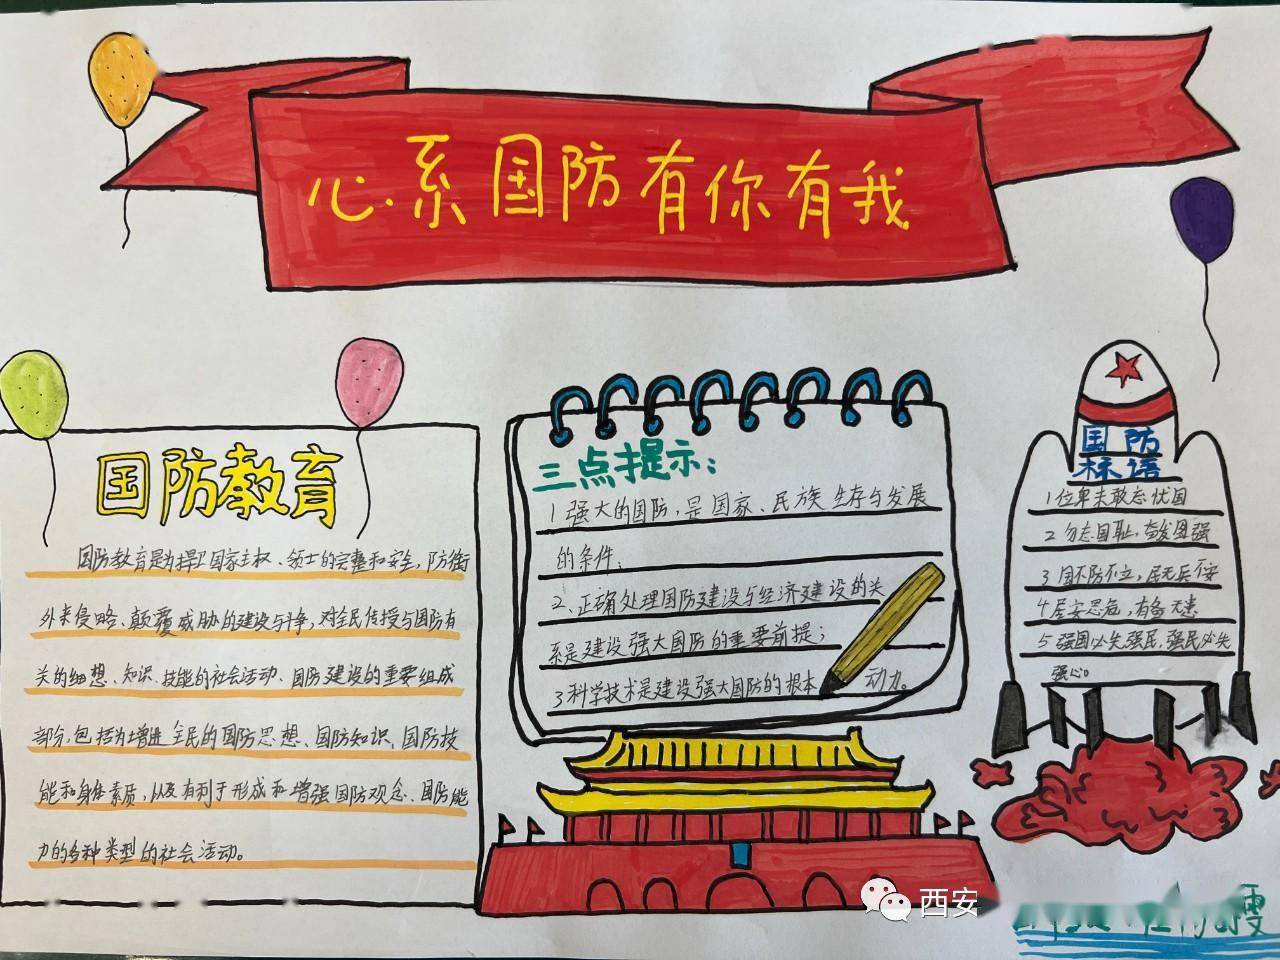 心系国防有你有我
国防教育
国防教育是为捍卫国家主权、领土的完整和安全,防御
外来侵略、颠覆威胁的建设与斗争,对全民传授与国防有
关的细想、知识、技能的社会活动、国防建设的重要组成
部分,包括为增进全民的国防思想、国防知识、国防技
能和身体素质,以及有利于形成和增强国防观念、国防能
力的各种类型的社会活动。
三点提示:
1强大的国防,是国家、民族生存与发展
的条件;
2、正确处理国防建设与经济建设的关
系是建设强大国防的重要前提;
3科学技术是建设强大国防的根本动力。
国防
标语
1位卑未敢忘忧国
2勿忘国耻,奋发图强
3国不防不立,居无兵不安
4居安思危,有备无患
5强国必先强民,强民必先
强心。
西安